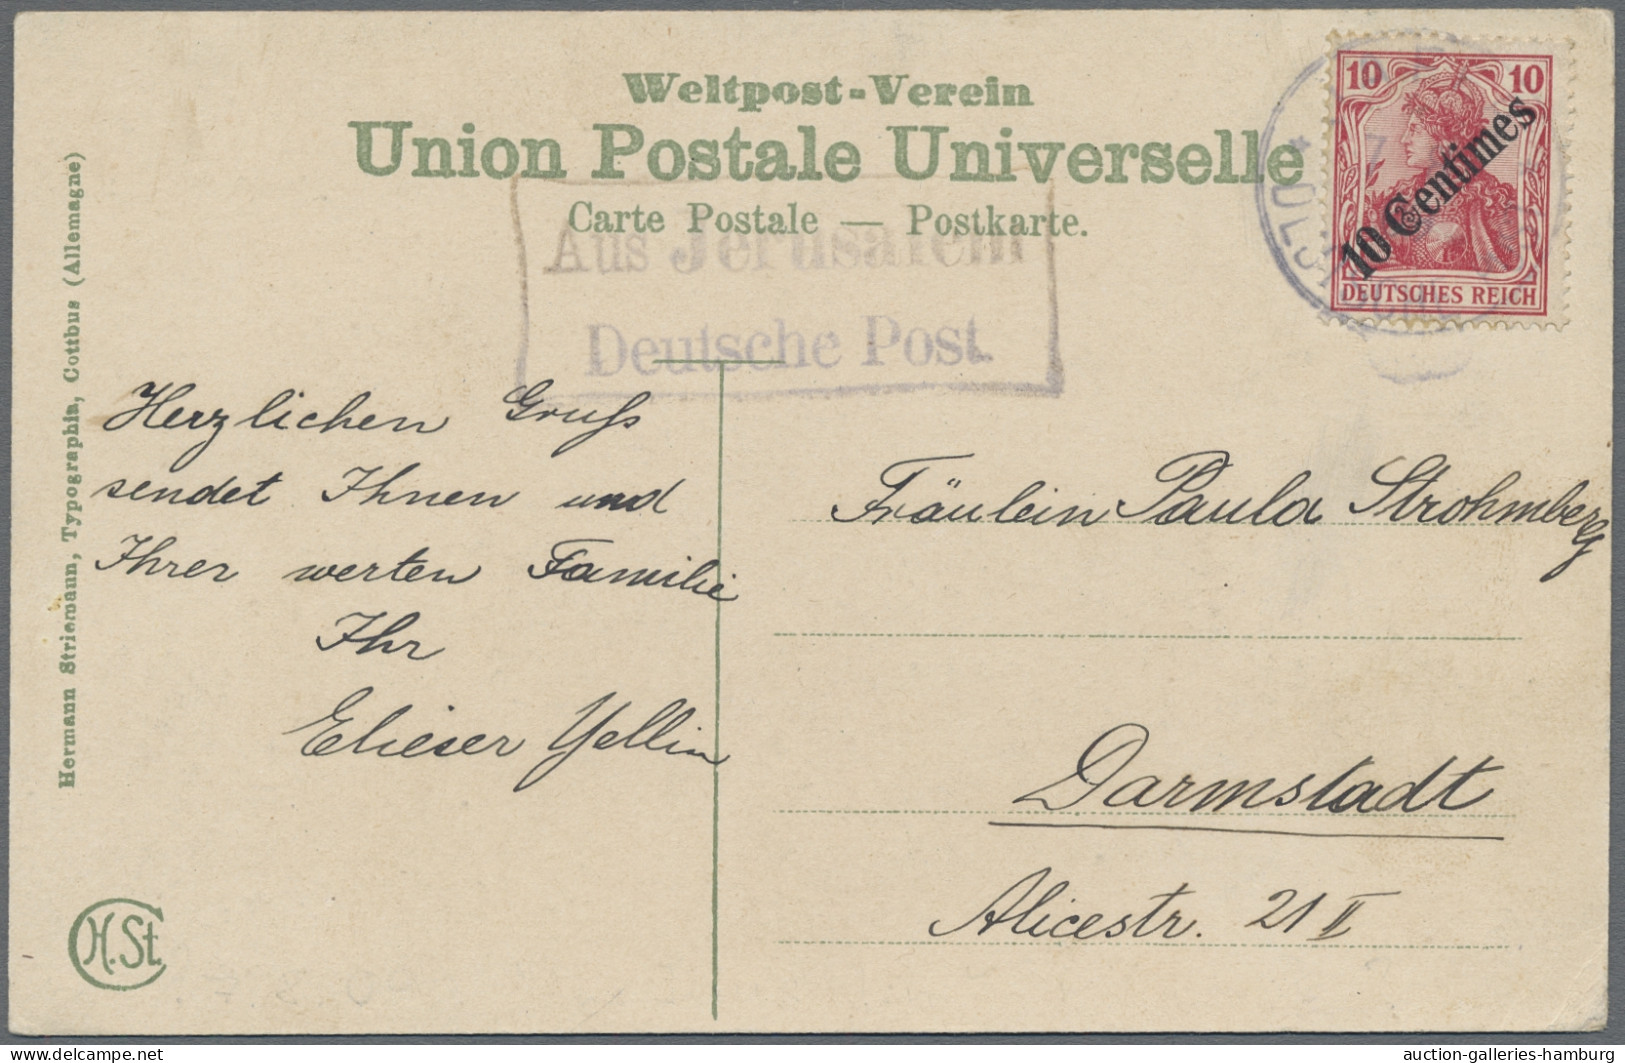 Weltpost-Verein
Union Postale Universelle
Carte Postale — Postkarte.
Aus Jerusalem
Deutsche Post.
10 10
10 Centimes
DEUTSCHES REICH
Hermann Striemann, Typographia, Cottbus (Allemagne)
Herzlichen Gruss
sendet Ihnen und
Ihrer werten Familie
Ihr
Elieser Yellin
Fräulein Paula Strohmberg
Darmstadt
Alicestr. 21 II
H.St.
auction-galleries-hamburg